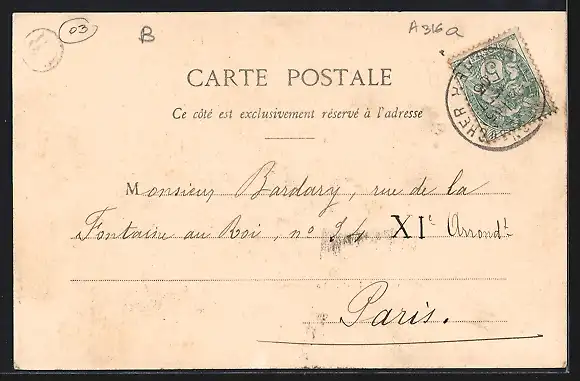 03
B
A 316 a
CARTE POSTALE
Ce côté est exclusivement réservé à l'adresse
5
CHER
Monsieur Bardary, rue de la
Fontaine au Roi, nº 74 XIe Arrondt
Paris.